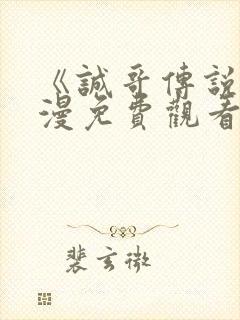 《誠哥傳說
漫免費觀看
裴玄微